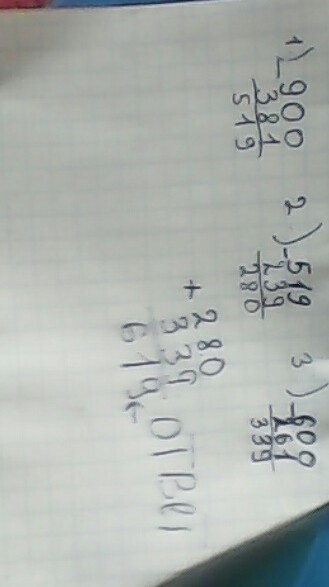 1) _900
381
519
2) _519
239
280
3) _600
261
339
+280
339
619